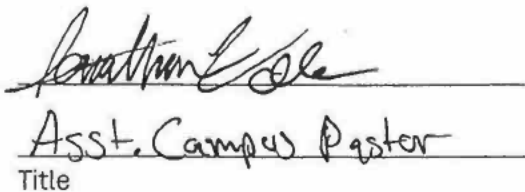 Jonathan
Asst. Campus Pastor
Title